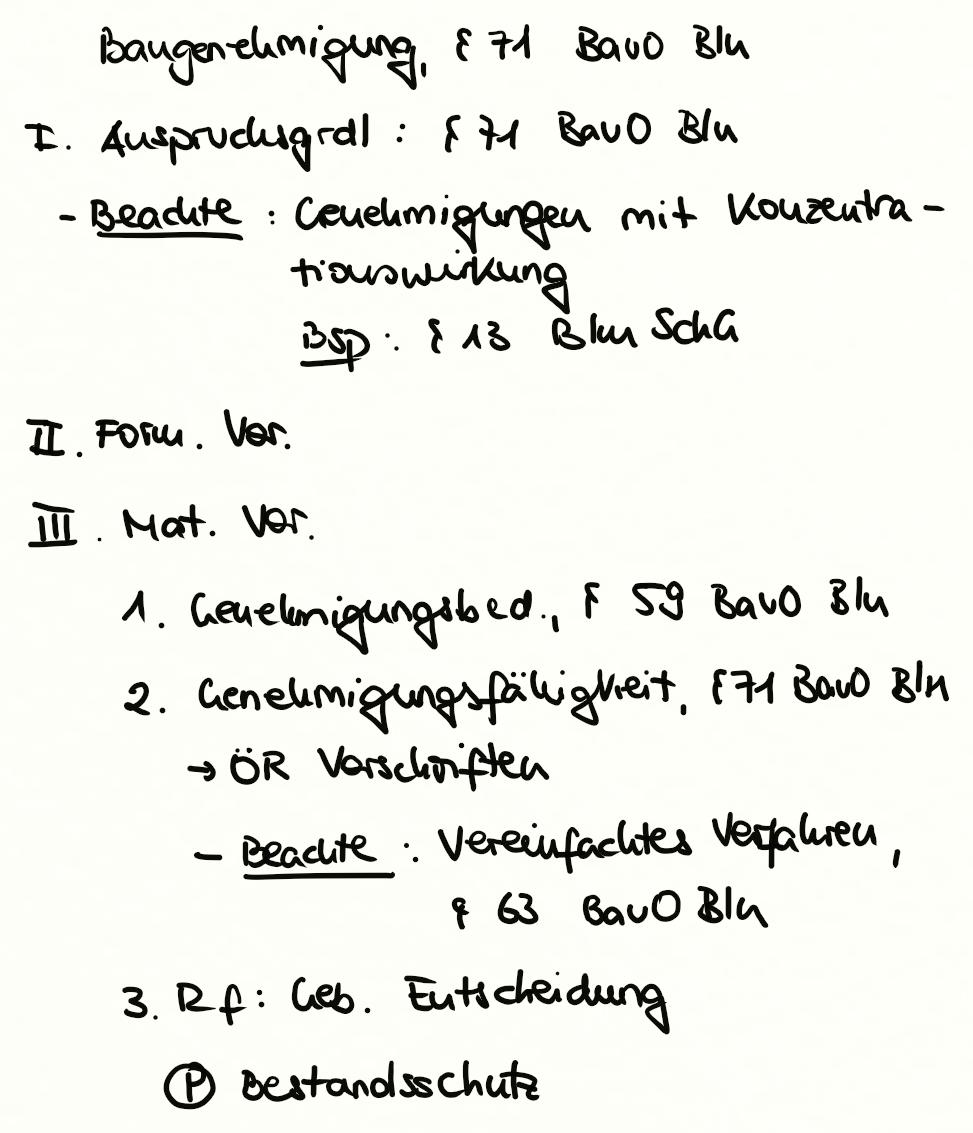 Baugenehmigung, § 71 BauO Bln
I. Anspruchsgrdl : § 71 BauO Bln
- Beachte : Genehmigungen mit Konzentra-
tionswirkung
Bsp : § 13 BImSchG
II. Form. Vor.
III. Mat. Vor.
1. Genehmigungsbed., § 59 BauO Bln
2. Genehmigungsfähigkeit, § 71 BauO Bln
→ ÖR Vorschriften
- Beachte : Vereinfachtes Verfahren,
§ 63 BauO Bln
3. Rf : Geb. Entscheidung
Ⓟ Bestandsschutz